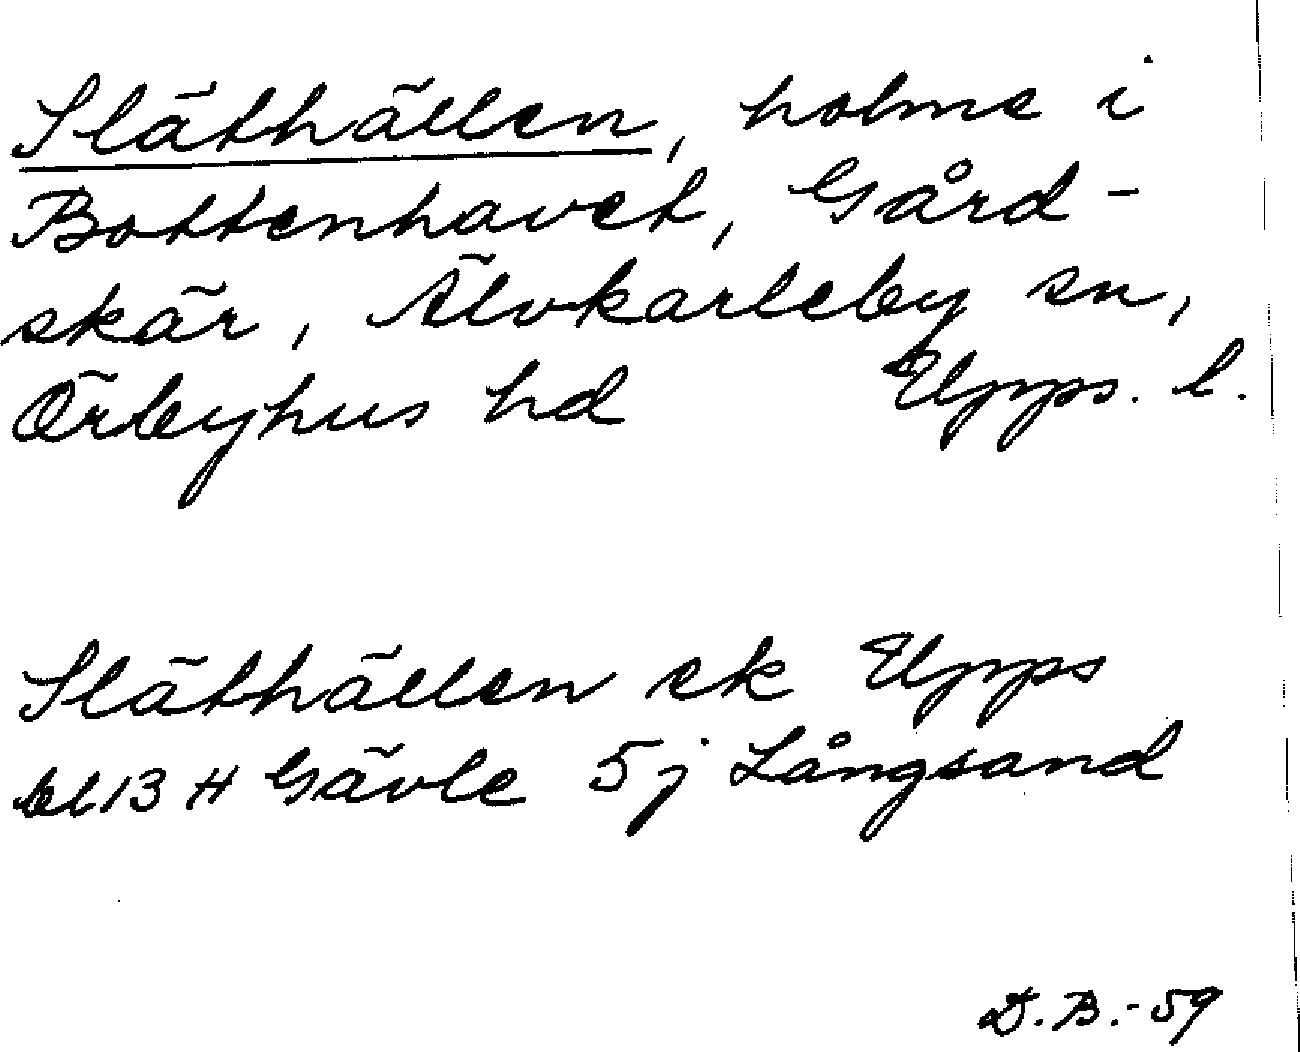 Släthällen, holme i
Bottenhavet, Gård-
skär, Älvkarleby sn,
Örbyhus hd Upps. l.
Släthällen ek Upps
bl 13 H Gävle 5j Långsand
D.B.-59